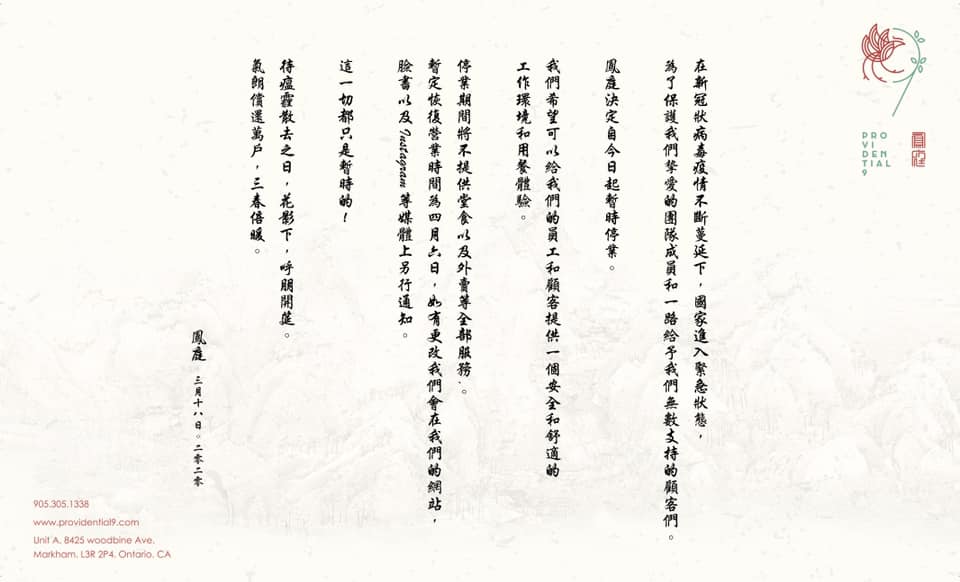 PRO
VI
DEN
TIAL
9
鳳庭
在新冠狀病毒疫情不斷蔓延下，國家進入緊急狀態，
為了保護我們摯愛的團隊成員和一路給予我們無數支持的顧客們。
鳳庭決定自今日起暫時停業。
我們希望可以給我們的員工和顧客提供一個安全和舒適的
工作環境和用餐體驗。
停業期間將不提供堂食以及外賣等全部服務.。
暫定恢復營業時間為四月六日，如有更改我們會在我們的網站，
臉書以及Instagram等媒體上另行通知。
這一切都只是暫時的！
待瘟霾散去之日，花影下，呼朋開筵。
氣朗償還萬戶，三春倍暖。
鳳庭 三月十八日。二零二零
905.305.1338
www.providential9.com
Unit A, 8425 woodbine Ave,
Markham, L3R 2P4, Ontario, CA